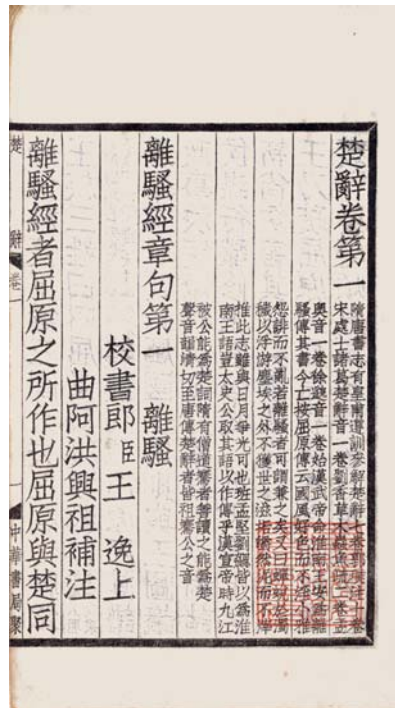 楚辭卷第一
隋唐書志有皇甫遵訓參解楚辭七卷郭璞注十卷
宋處士諸葛楚辭音一卷劉杳草木蟲魚疏二卷孟
奧音一卷徐邈音一卷始漢武帝命淮南王安爲離
騷傳其書今亡按屈原傳云國風好色而不淫小雅
怨誹而不亂若離騷者可謂兼之矣又曰蟬蛻於濁
穢以浮游塵埃之外不獲世之滋垢皭然泥而不滓
推此志雖與日月爭光可也班孟堅劉勰皆以爲淮
南王語豈太史公取其語以作傳乎漢宣帝時九江
被公能爲楚詞隋有僧道騫者善讀之能爲楚
聲音韻清切至唐傳楚辭者皆祖騫公之音
離騷經章句第一　離騷
校書郎臣王　逸上
曲阿洪興祖補注
離騷經者屈原之所作也屈原與楚同
楚辭　卷一　中華書局聚